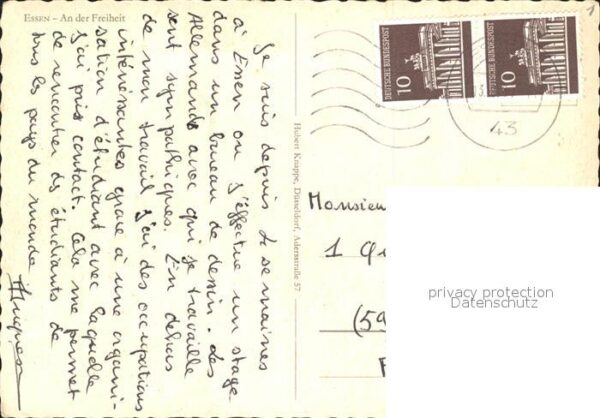 ESSEN – An der Freiheit
Je suis depuis 2 semaines
à Essen ou j'effectue un stage
dans un bureau de dessin. Les
Allemands avec qui je travaille
sont sympathiques. En dehors
de mon travail j'ai des occupations
intéressantes grace à une organi-
sation d'étudiant avec laquelle
j'ai pris contact. Cela me permet
de rencontrer des étudiants de
tous les pays du monde
Hugues
Hubert Knappe, Düsseldorf, Adersstraße 57
DEUTSCHE BUNDESPOST
10
DEUTSCHE BUNDESPOST
10
43
Monsieur
1
(59
privacy protection
Datenschutz